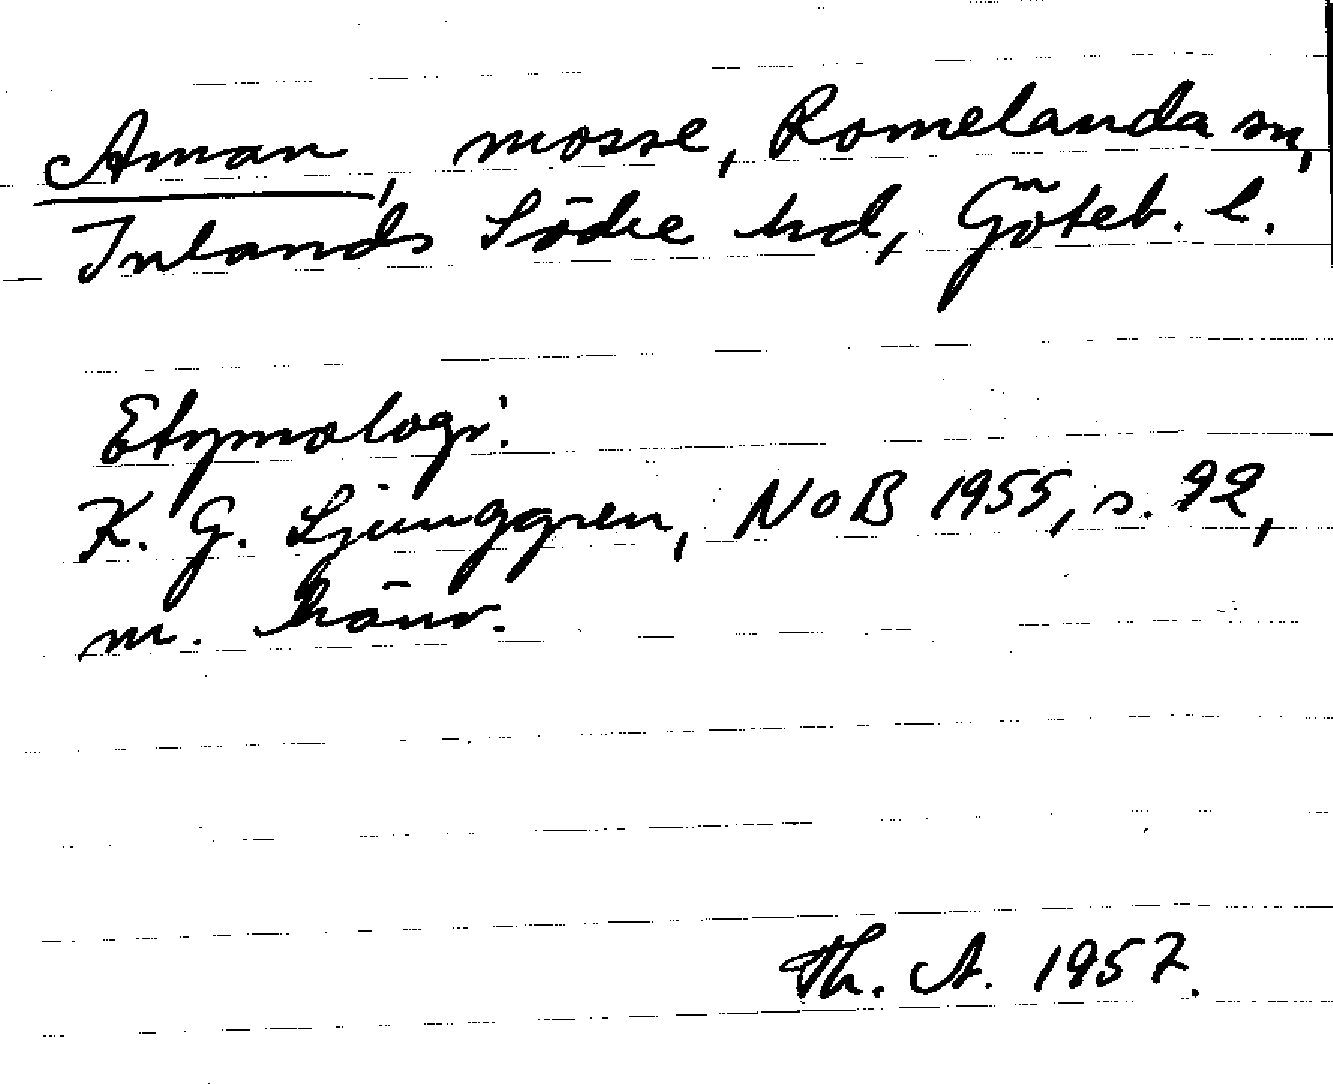 Aman, mosse, Romelanda sn,
Inlands Södre hd, Göteb. l.
Etymologi:
K. G. Ljunggren, NoB 1955, s. 92,
m. hänv.
Th. A. 1957.